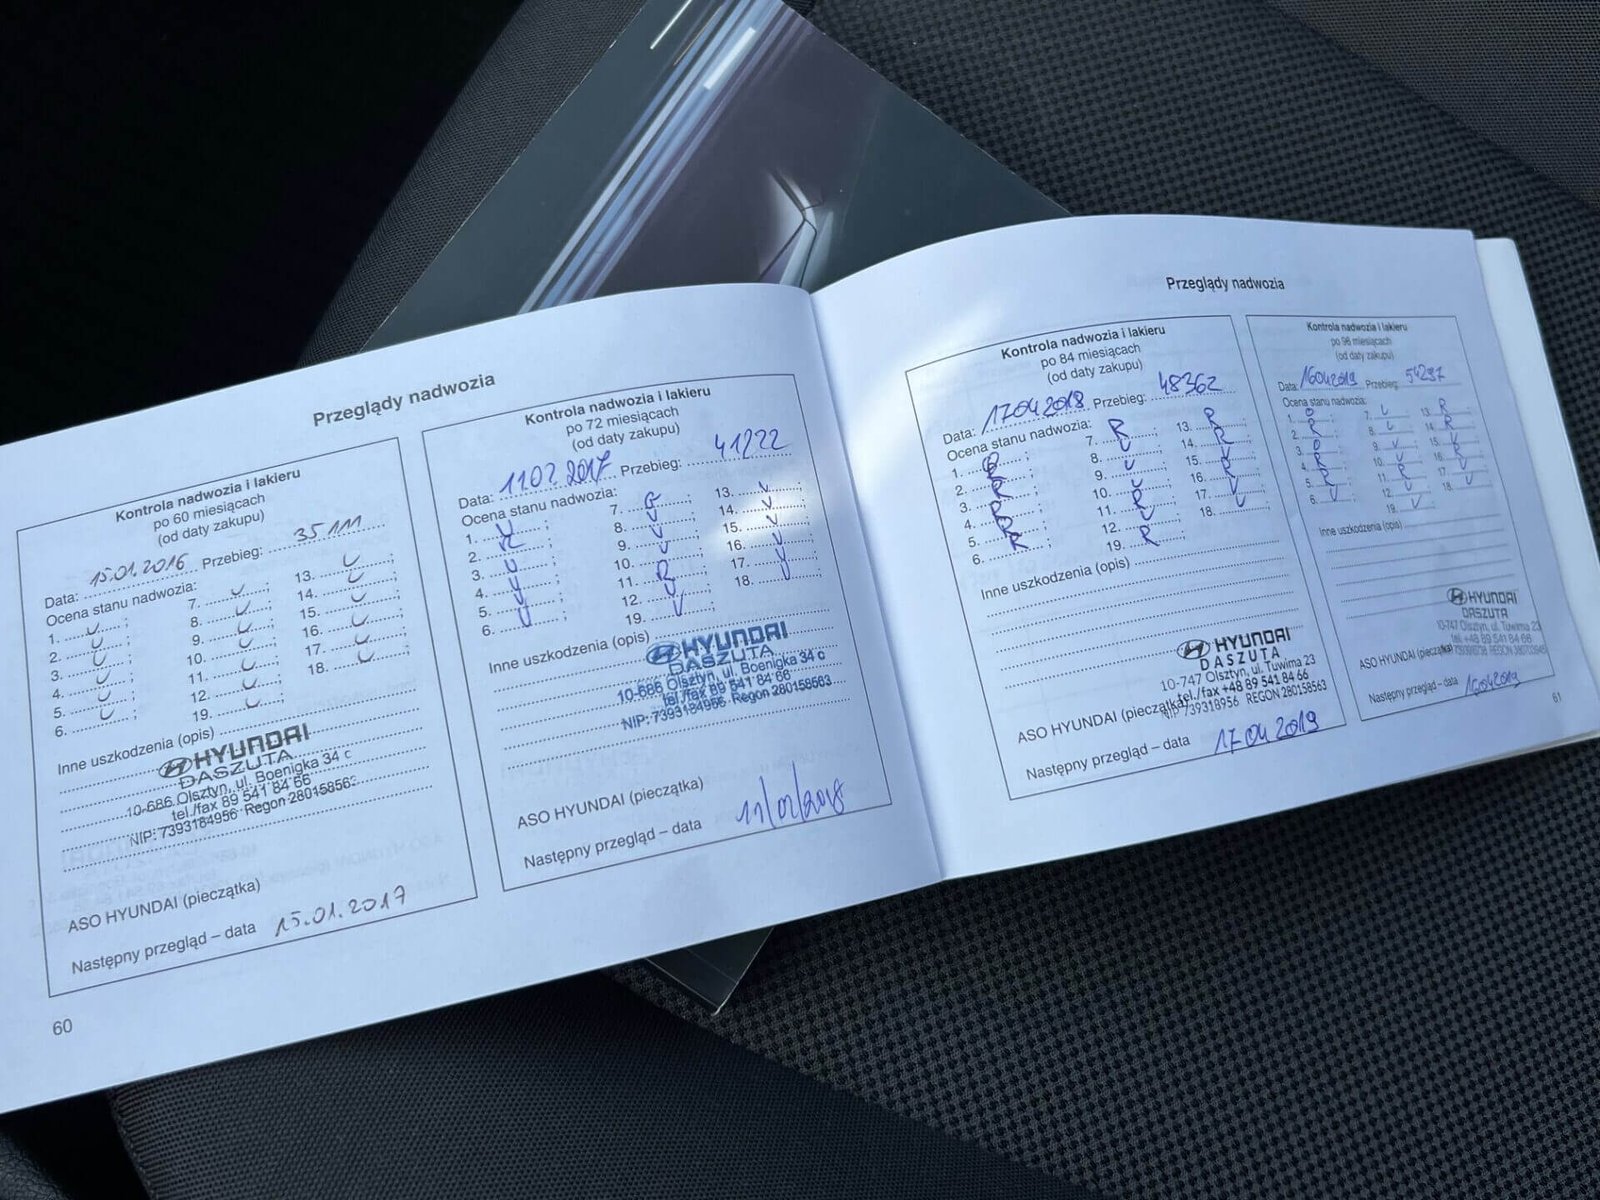 Przeglądy nadwozia
Kontrola nadwozia i lakieru
po 60 miesiącach
(od daty zakupu)
Data: 15.01.2016 Przebieg: 35 111
Ocena stanu nadwozia:
1. V ; 7. V ; 13. V ;
2. V ; 8. V ; 14. V ;
3. V ; 9. V ; 15. V ;
4. V ; 10. V ; 16. V ;
5. V ; 11. V ; 17. V ;
6. V ; 12. V ; 18. V ;
19. V
Inne uszkodzenia (opis)
HYUNDAI
DASZUTA
10-686 Olsztyn, ul. Boenigka 34 c
tel./fax 89 541 84 66
NIP: 7393184956 Regon 280158563
ASO HYUNDAI (pieczątka)
Następny przegląd – data 15.01.2017
60
Kontrola nadwozia i lakieru
po 72 miesiącach
(od daty zakupu)
Data: 11 02 2017 Przebieg: 41222
Ocena stanu nadwozia:
1. V ; 7. R ; 13. V ;
2. R ; 8. V ; 14. V ;
3. V ; 9. V ; 15. V ;
4. V ; 10. V ; 16. V ;
5. V ; 11. R ; 17. V ;
6. V ; 12. V ; 18. V ;
19. V
Inne uszkodzenia (opis)
HYUNDAI
DASZUTA
10-686 Olsztyn, ul. Boenigka 34 c
tel./fax 89 541 84 66
NIP: 7393184956 Regon 280158563
ASO HYUNDAI (pieczątka)
Następny przegląd – data 11/02/2018
Przeglądy nadwozia
Kontrola nadwozia i lakieru
po 84 miesiącach
(od daty zakupu)
Data: 17 04 2018 Przebieg: 48362
Ocena stanu nadwozia:
1. R ; 7. R ; 13. R ;
2. R ; 8. V ; 14. R ;
3. R ; 9. V ; 15. R ;
4. R ; 10. R ; 16. V ;
5. R ; 11. R ; 17. V ;
6. R ; 12. R ; 18.
19. R
Inne uszkodzenia (opis)
HYUNDAI
DASZUTA
10-747 Olsztyn, ul. Tuwima 23
tel./fax +48 89 541 84 66
NIP 739318956 REGON 280158563
ASO HYUNDAI (pieczątka)
Następny przegląd – data 17 04 2019
Kontrola nadwozia i lakieru
po 96 miesiącach
(od daty zakupu)
Data: 16042019 Przebieg: 54297
Ocena stanu nadwozia:
1. 7. 13. R
2. 8. 14. R
3. 9. V 15.
4. 10. 16.
5. 11. 17. V
6. V 12. 18. V
19. V
Inne uszkodzenia (opis)
HYUNDAI
DASZUTA
10-747 Olsztyn, ul. Tuwima 23
tel. +48 89 541 84 66
ASO HYUNDAI (pieczątka)
Następny przegląd – data
61